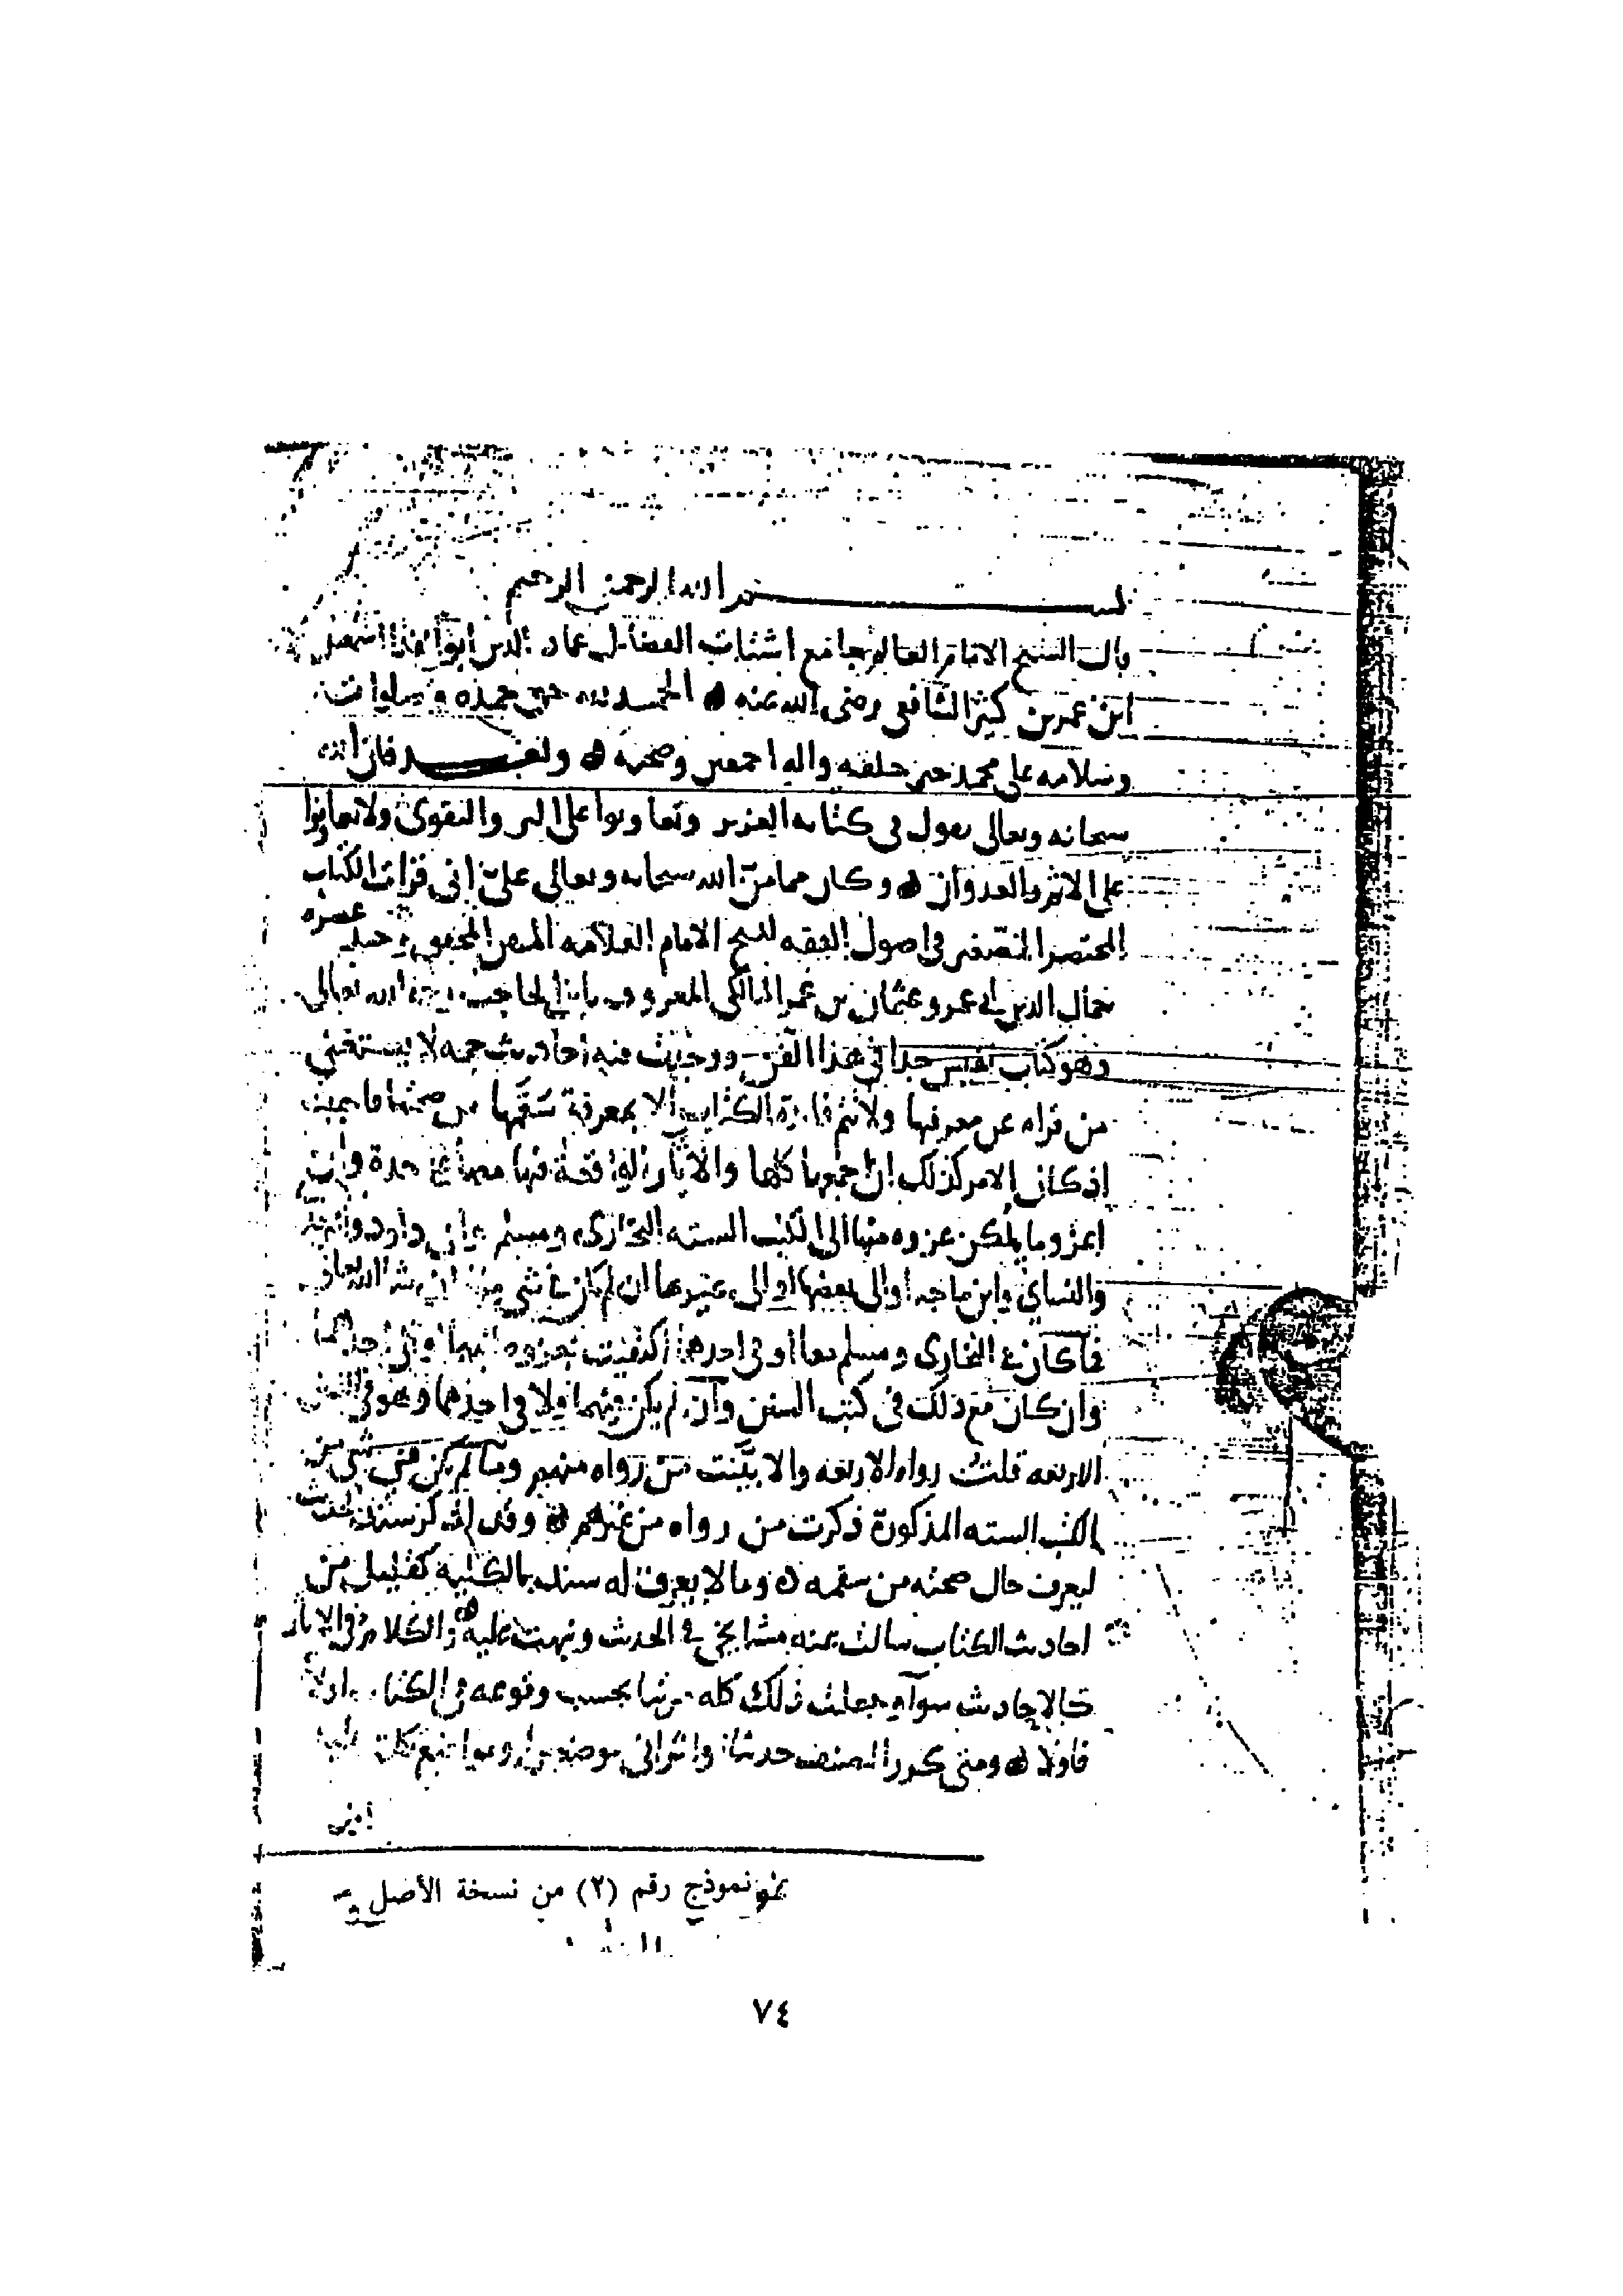 بسم الله الرحمن الرحيم
قال الشيخ الامام العالم جامع اشتات الفضائل عماد الدين ابو الفدا اسمعيل
ابن عمر بن كثير الشافعي رضي الله عنه الحمد لله حق حمده وصلواته
وسلامه على محمد خير خلقه واله اجمعين وصحبه وبعد فان الله
سبحانه وتعالى يقول في كتابه العزيز وتعاونوا على البر والتقوى ولا تعاونوا
على الاثم والعدوان وكان مما من الله سبحانه وتعالى علي اني قرات الكتاب
المختصر الصغير في اصول الفقه للشيخ الامام العلامه المتقن المحقق وحيد عصره
جمال الدين ابي عمرو عثمان بن عمر المالكي المعروف بابن الحاجب رحمه الله تعالى
وهو كتاب نفيس جدا في هذا الفن ووجدت فيه احاديث جمه لا يستغني
من قراه عن معرفتها ولا تتم فايدة الكتاب الا بمعرفة سقمها من صحتها فاحببت
اذ كان الامر كذلك ان اجمعها كلها والاثار الواقعة فيها معها على حدة وان
اعزو ما يمكن عزوه منها الى الكتب السته البخاري ومسلم وابي داود والترمذي
والنساي وابن ماجه او الى بعضها او الى غيرها ان لم يكن في شي منها ان شا الله تعالى
فما كان في البخاري ومسلم معا او في احدهما اكتفيت بعزوه اليهما او الى احدهما
وان كان مع ذلك في كتب السنن وان لم يكن فيهما ولا في احدهما وهو في السنن
الاربعه قلت رواه الاربعه والا بينت من رواه منهم وما لم يكن في شي من
الكتب السته المذكورة ذكرت من رواه من غيرهم وقد اذكر سند الحديث
ليعرف حال صحته من سقمه وما لا يعرف له سند بالكلية كقليل من
احاديث الكتاب سالت عنه مشايخي في الحديث ونبهت عليه والكلام في الاثار
كالاحاديث سوآء وجعلت ذلك كله مرتبا بحسب وقوعه في الكتاب اولا
فاولا ومتى كرر المصنف حديثا او اثرا في موضعين او مواضع تكلمت عليه
نموذج رقم (٢) من نسخة الأصل
٧٤